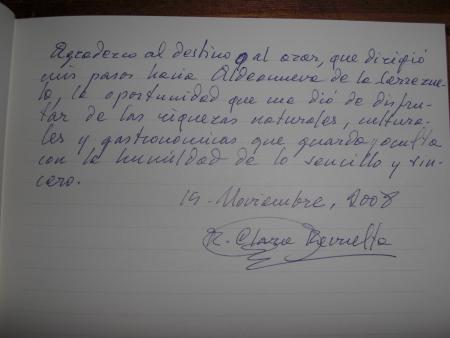 Agradezco al destino o al azar, que dirigió
mis pasos hacia Aldeanueva de la Serrezue-
la, la oportunidad que me dió de disfru-
tar de las riquezas naturales, cultura-
les y gastronómicas que guarda y oculta
con la humildad de lo sencillo y sin-
cero.
19-Noviembre, 2008
R.